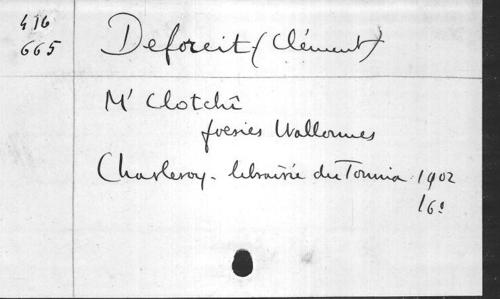 416
665
Deforeit (Clément)
M' Clotchî
poésies Wallonnes
Charleroy - librairie du Tonnia 1902
16°